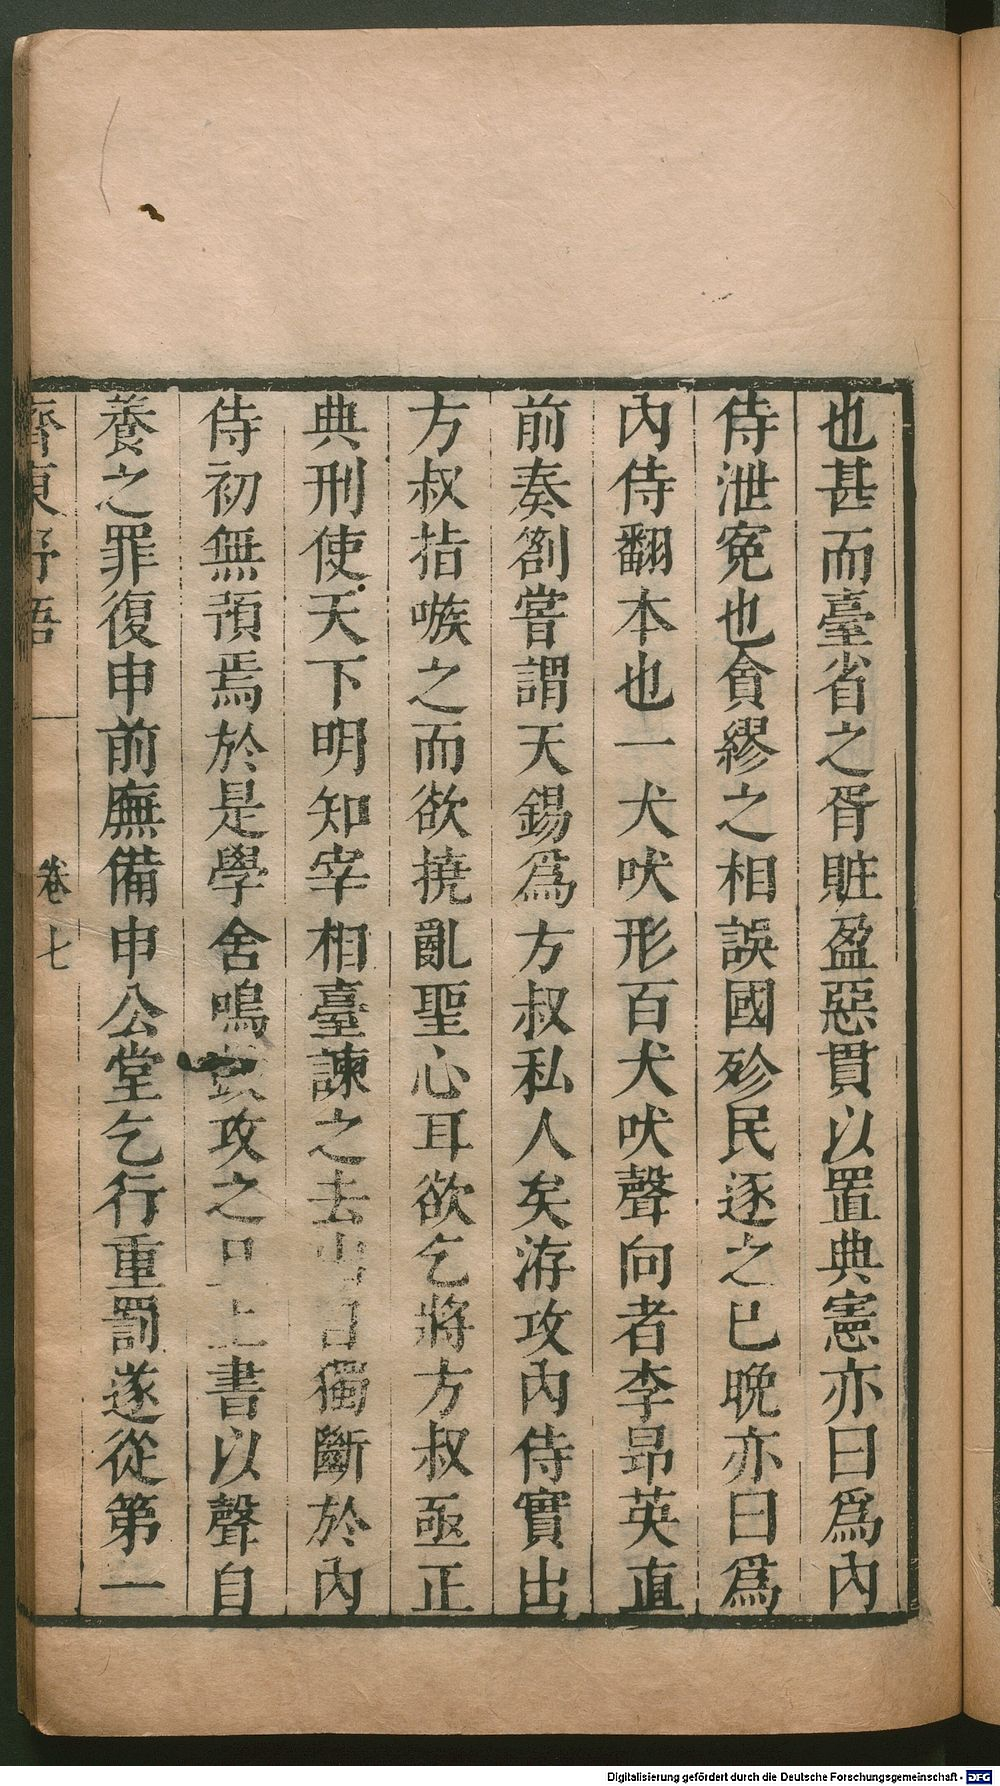 也甚而臺省之胥贓盈惡貫以置典憲亦曰爲内
侍泄寃也貪繆之相誤國殄民逐之已晩亦曰爲
内侍翻本也一犬吠形百犬吠聲向者李昴英直
前奏劄嘗謂天錫爲方叔私人矣洊攻内侍實出
方叔指嗾之而欲撓亂聖心耳欲乞將方叔亟正
典刑使天下明知宰相臺諫之去出自獨斷於内
侍初無預焉於是學舍鳴鼓攻之且上書以聲自
養之罪復申前廡備申公堂乞行重罰遂從第一
齊東野語
卷七
Digitalisierung gefördert durch die Deutsche Forschungsgemeinschaft - DFG